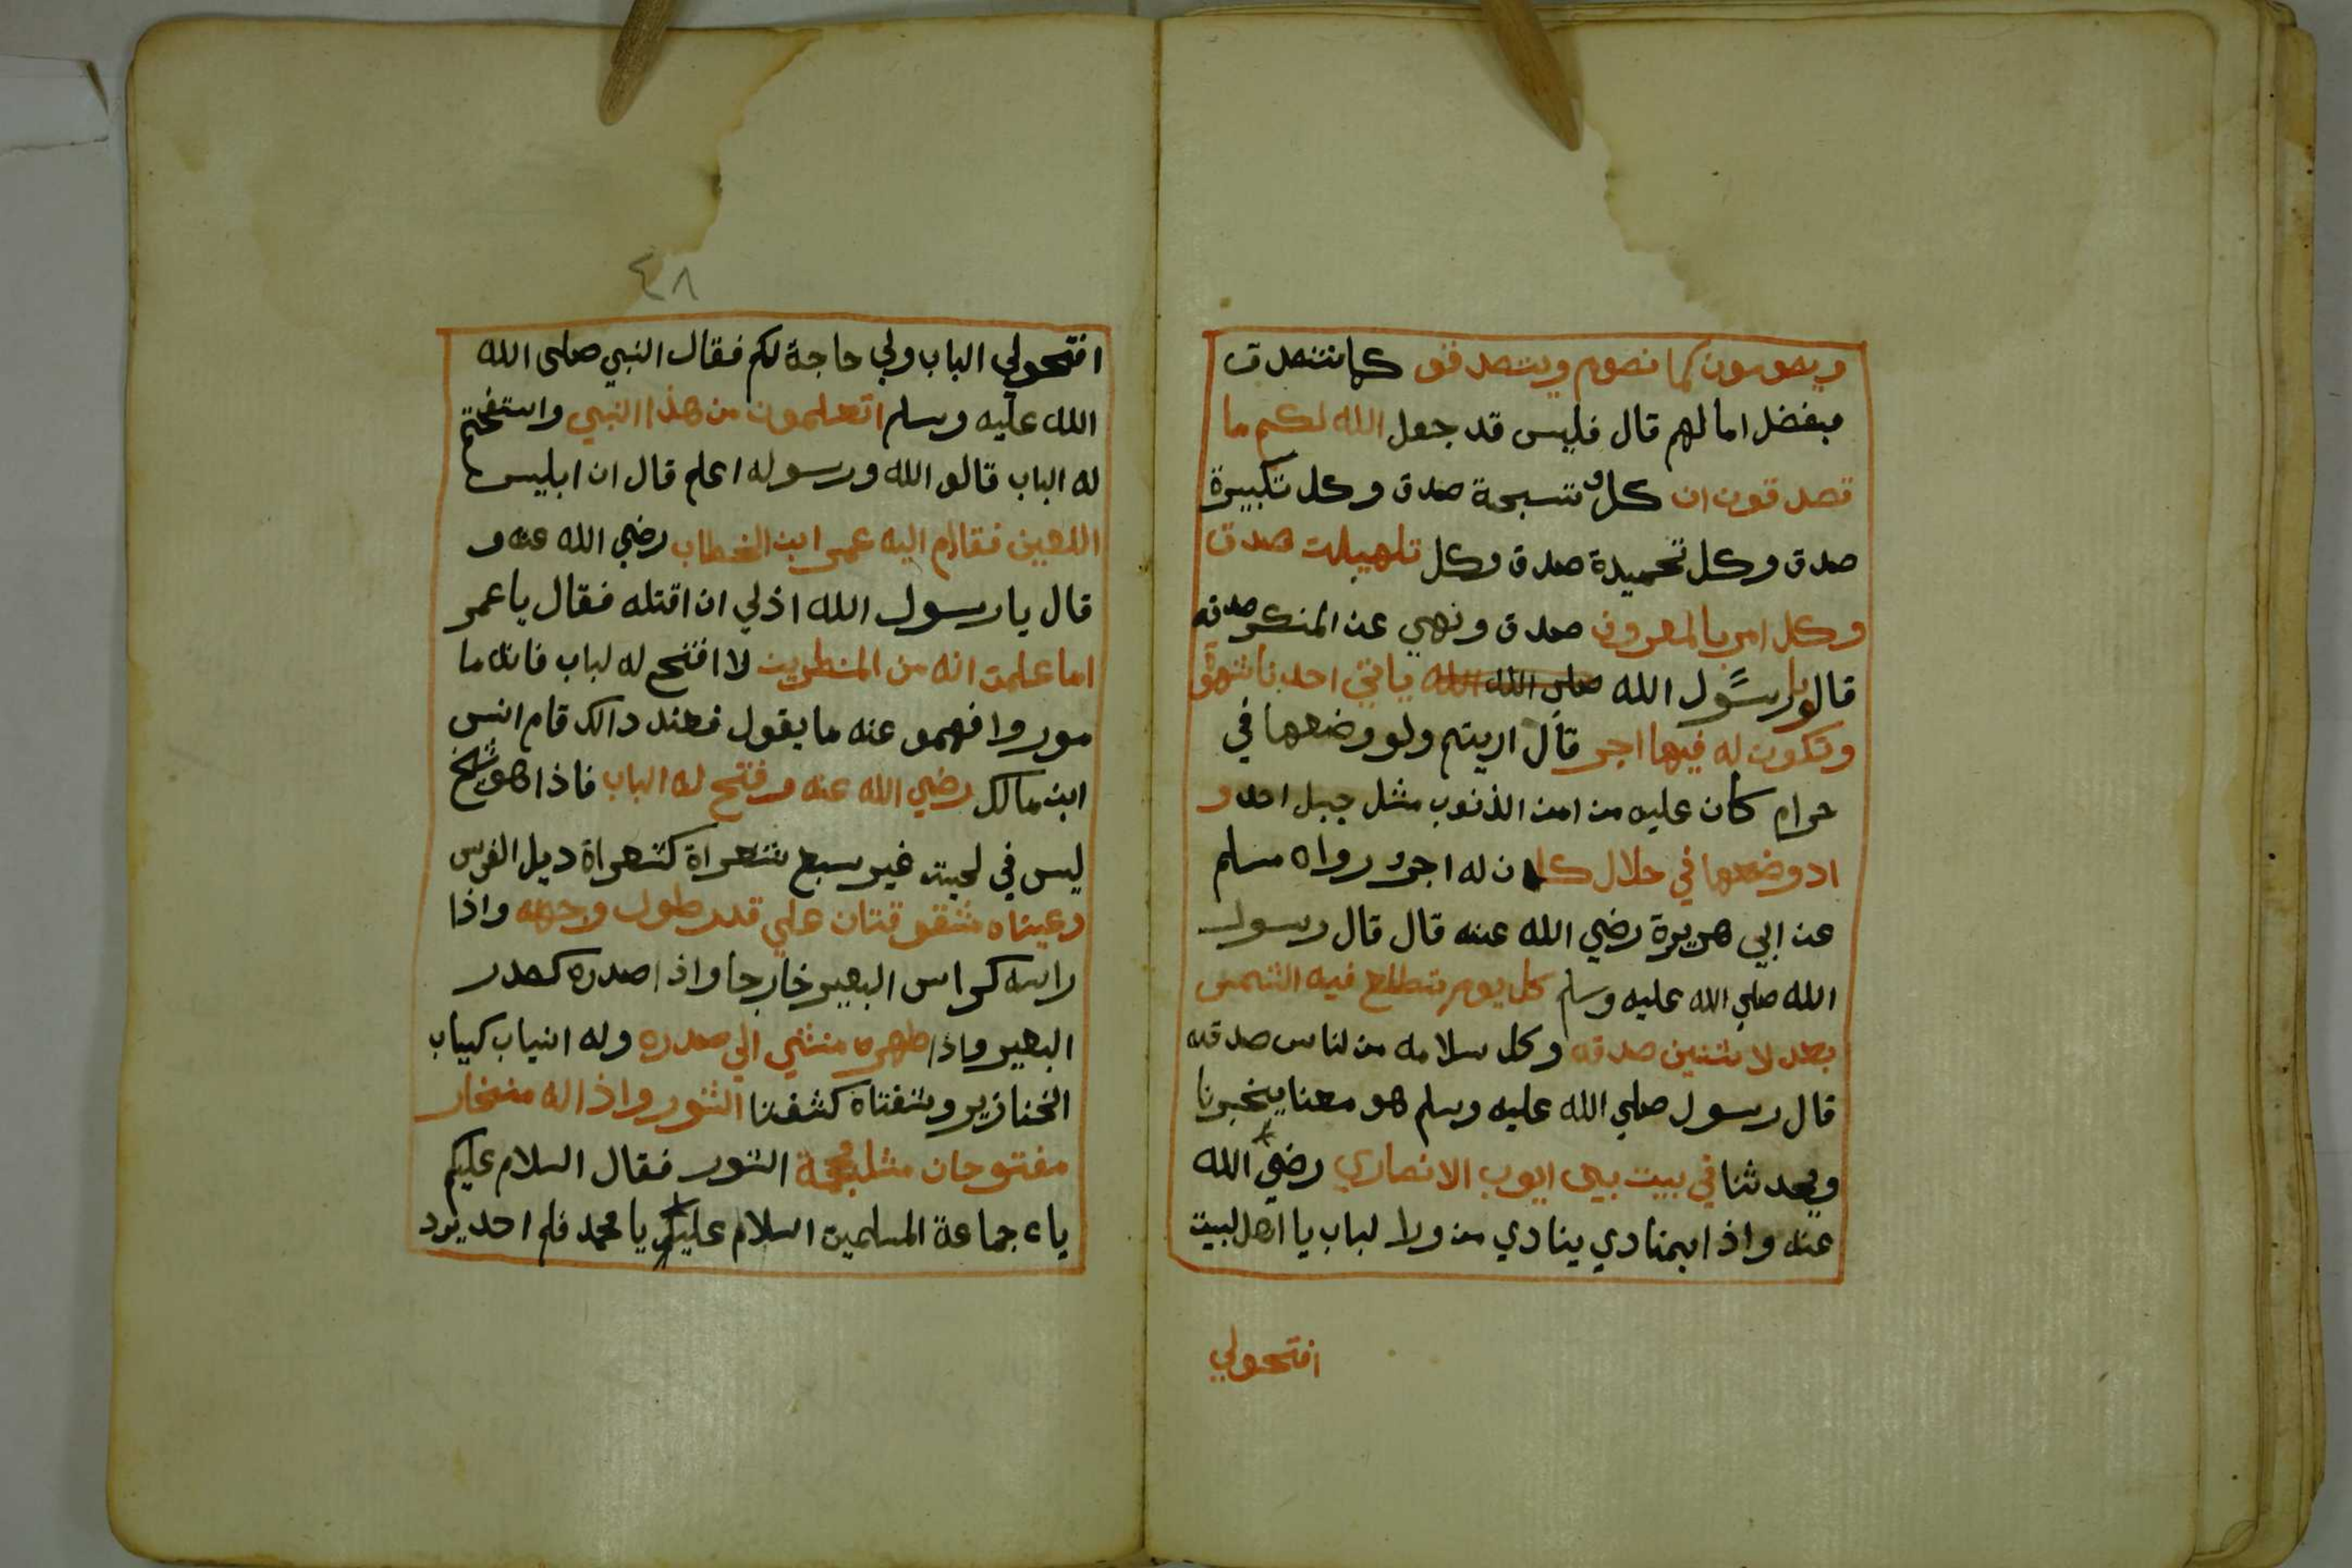 ويصومون كما نصوم ويتصدقو كما نتصدق
مبفضل امالهم قال فليس قد جعل الله لكم ما
تصدقون ان كل تسبحة صدق وكل تكبيرة
صدق وكل تحميدة صدق وكل تلهيلت صدق
وكل امر بالمعروف صدق ونهي عن المنكر صدقه
قالو يا رسول الله صلى الله ياتي احدنا شهوة
وتكون له فيها اجر قال اريتم ولو وضعها في
حرام كان عليه من امن الذنوب مثل جبل احد و
اد وضعها في حلال كان له اجر رواه مسلم
عن ابي هريرة رضي الله عنه قال قال رسول
الله صلي الله عليه وسلم كل يوم تطلع فيه الشمس
بعد لا شنين صدقه وكل سلامه من لناس صدقه
قال رسول صلي الله عليه وسلم هو معنا يخبرنا
ويحدثنا في بيت بيى ايوب الانصاري رضي الله
عنه واذا بمنادي ينادي من ولا لباب يا اهل لبيت
افتحولي
٤٨
افتحولي الباب ولي حاجة لكم فقال النبي صلى الله
الله عليه وسلم اتعلمون من هذا النبي واستفتحتم
له الباب قالو الله ورسوله اعلم قال ان ابليس
اللعين فقام اليه عمر ابن الخطاب رضي الله عنه و
قال يا رسول الله اذلي ان اقتله فقال يا عمر
اما علمت انه من المنطرين لا افتح له لباب فانه ما
مور وا فهمو عنه ما يقول فعند دالك قام انس
ابن مالك رضي الله عنه وفتح له الباب فاذا هو شيخ
ليس في لحيته غير سبع شعراة كشعراة ديل الفرس
وعيناه شقوقتان علي قدر طول وجهه واذا
راسه كراس البعير خارجا واذا صدره كصدر
البعير واذا طهره منثني الي صدره وله انياب كياب
الخنازير وشفتاه كشفنا الثور واذا له منخار
مفتوحان مثل التور فقال السلام عليكم
ياء جماعة المسلمين السلام عليك يا محمد فلم احد يرد